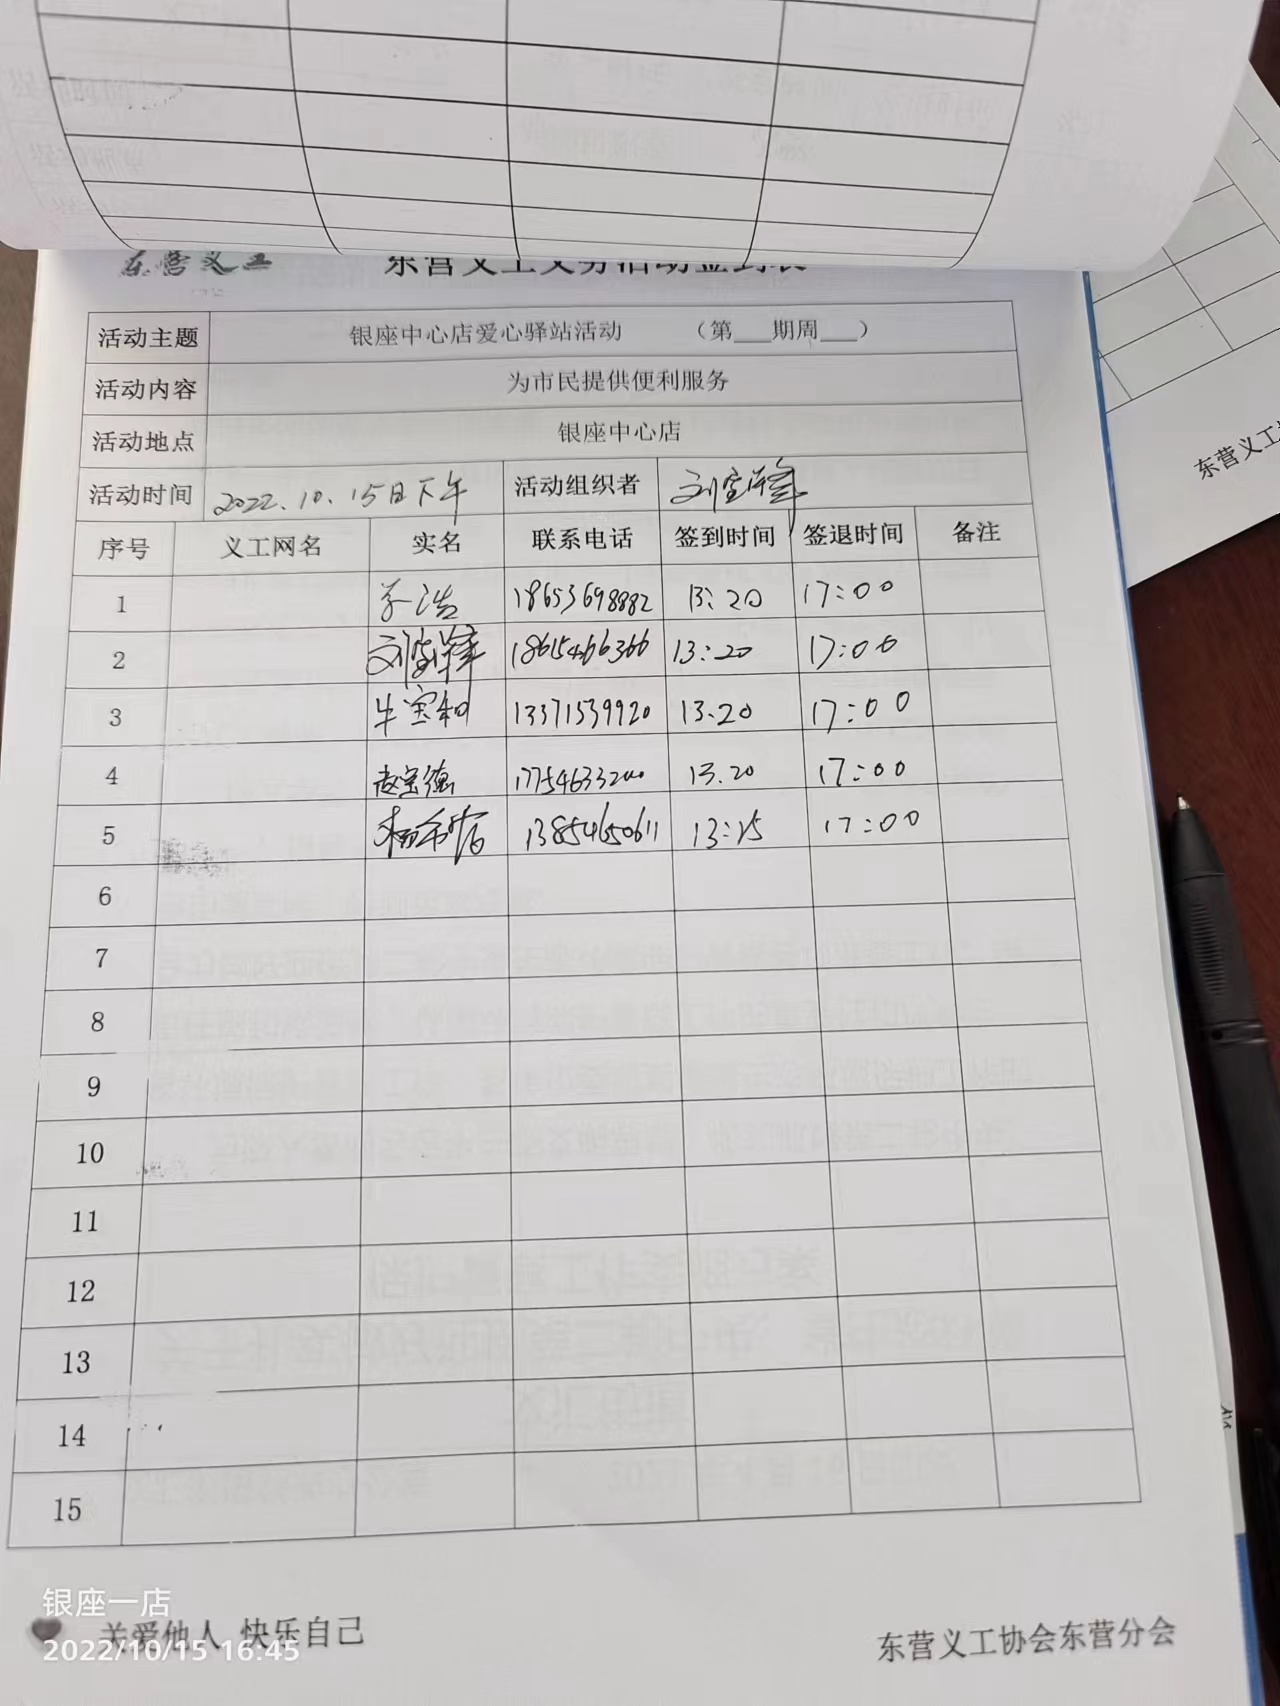 东营义工
东营义工义务活动签到表
活动主题 银座中心店爱心驿站活动 （第___期周___）
活动内容 为市民提供便利服务
活动地点 银座中心店
活动时间 2022.10.15日下午 活动组织者
序号 义工网名 实名 联系电话 签到时间 签退时间 备注
1 18653698882 13:20 17:00
2 18615466366 13:20 17:00
3 牛宝和 13371539920 13.20 17:00
4 赵宝德 17754633200 13.20 17:00
5 13854650611 13:15 17:00
6
7
8
9
10
11
12
13
14
15
关爱他人 快乐自己
东营义工协会东营分会
银座一店
2022/10/15 16:45
东营义工